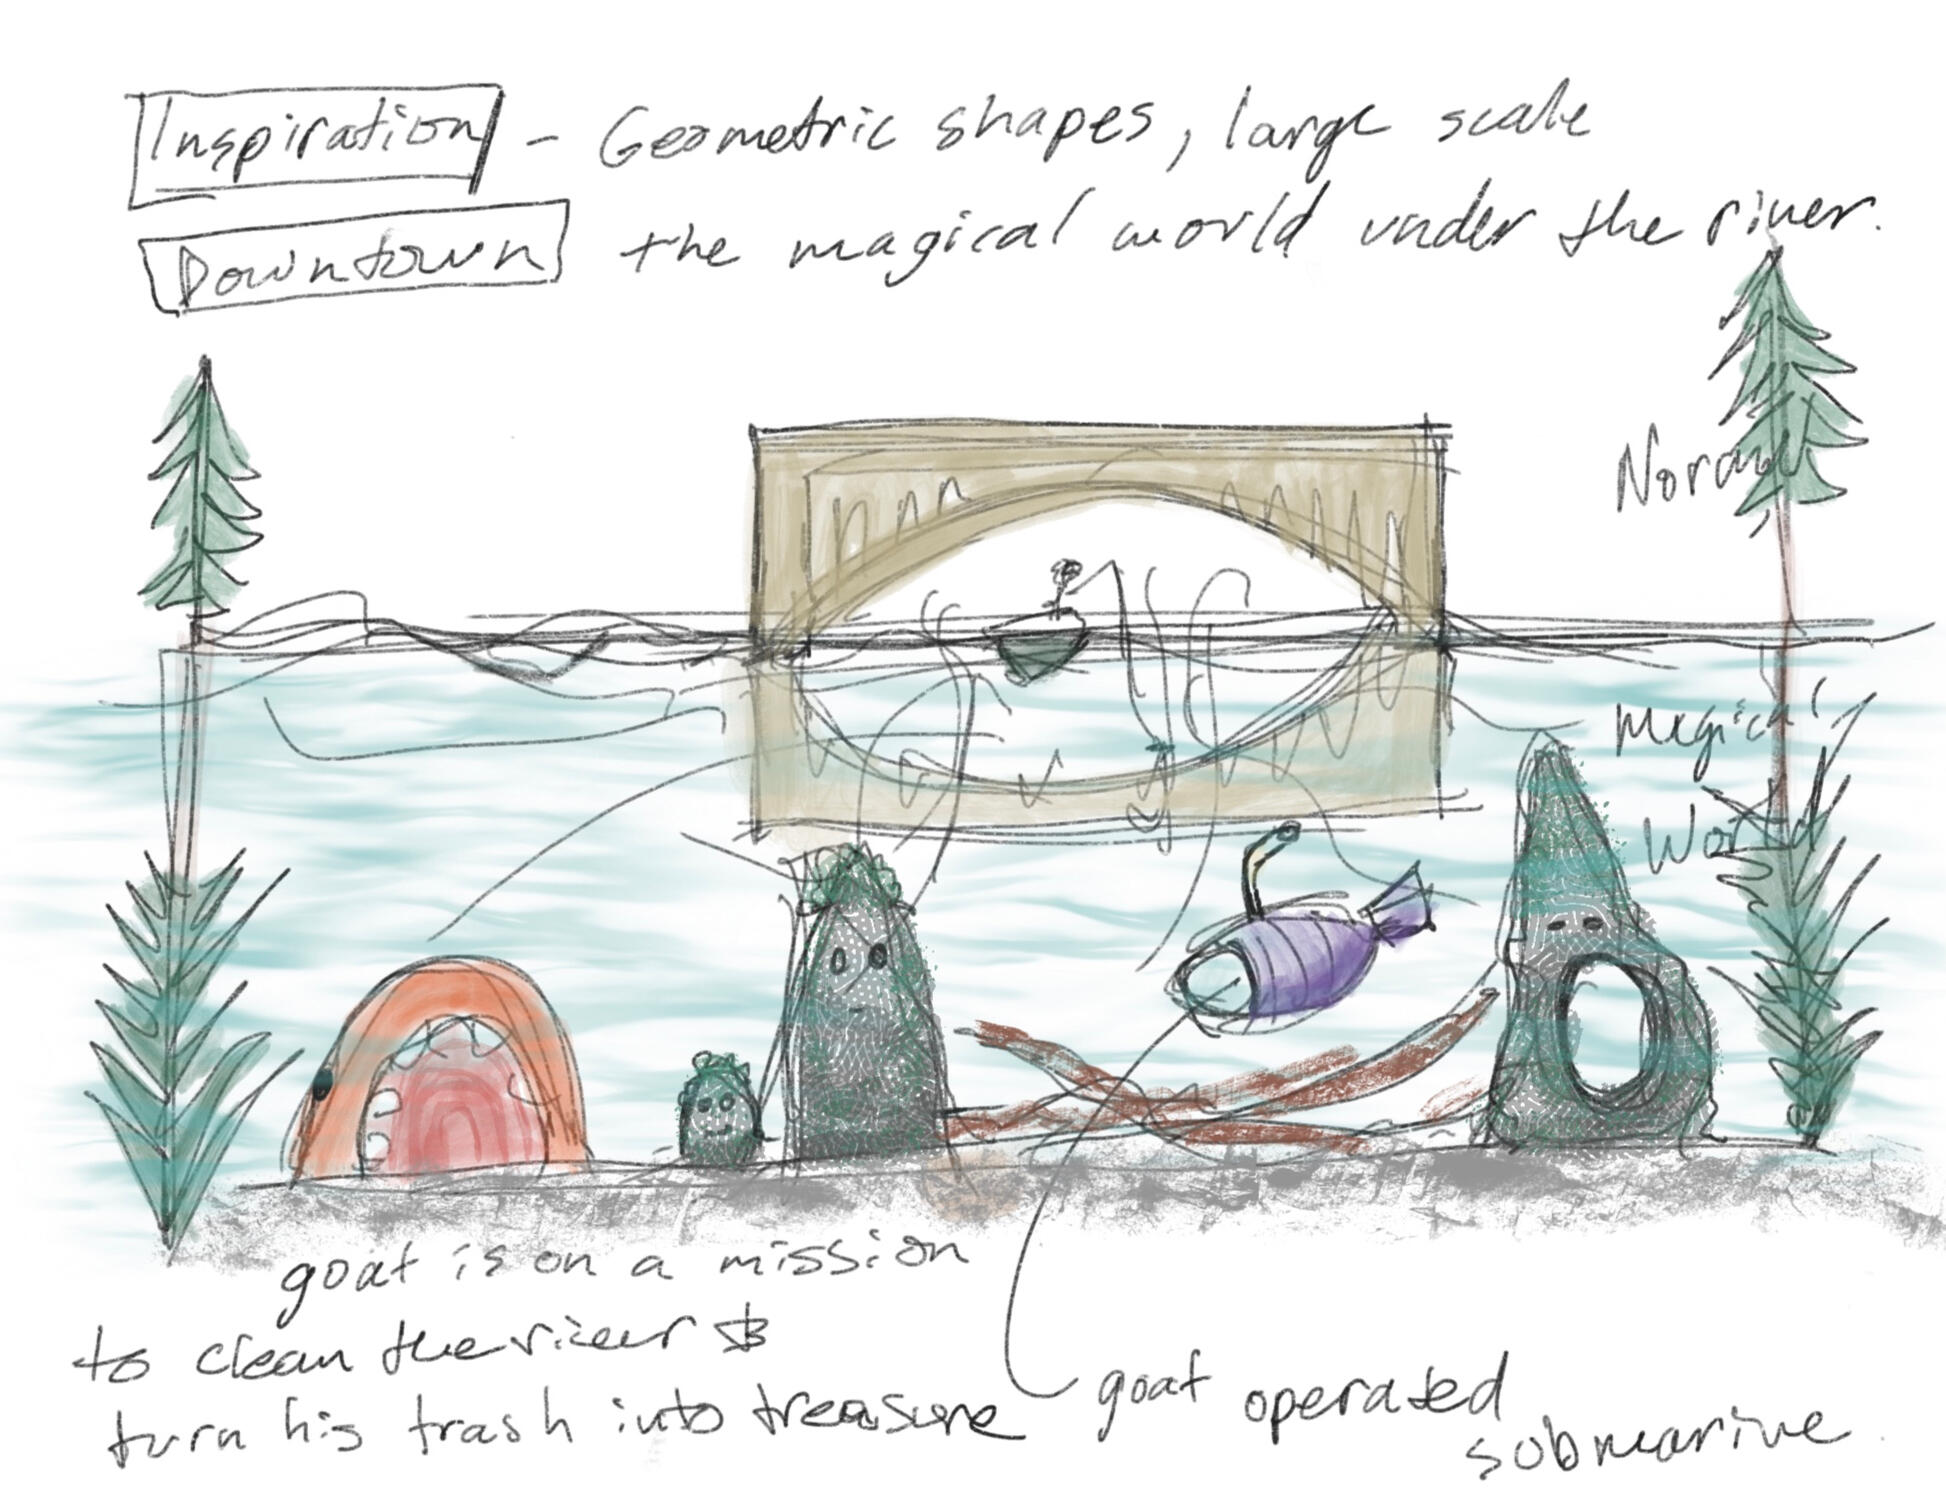 Inspiration - Geometric shapes, large scale
Downtown the magical world under the river.
Normal
Magical
World
goat is on a mission
to clean the river &
turn his trash into treasure
goat operated
submarine